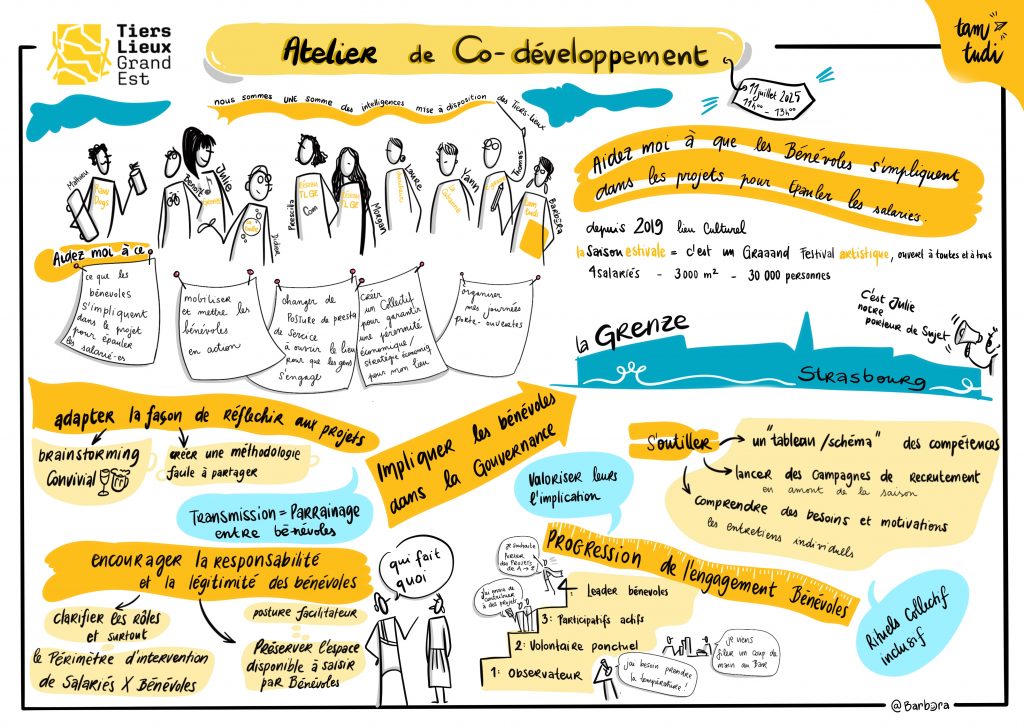 Tiers
Lieux
Grand
Est
Atelier de Co-développement
11 juillet 2025
11h00 - 13h00
tam
tudi
nous sommes UNE somme des intelligences mise à disposition des Tiers-Lieux
Mathieu
Raw
Dogs
Benoit
Julie
Grenze
Didier
Prescilla
Réseau
TLGE
Com
Réseau
TLGE
Morgan
Laure
Yann
La
Thomas
tam
tudi
Barbara
Aidez moi à ce
ce que les
bénévoles
S'impliquent
dans le projet
pour épauler
les salarié-es
mobiliser
et mettre les
bénévoles
en action
changer de
Posture de presta
de Service
à ouvrir le lieu
pour que les gens
s'engage
créer
un Collectif
pour garantir
une pérennité
économique/
stratégie économiq
pour mon lieu
organiser
mes journées
porte-ouvertes
Aidez moi à que les Bénévoles s'impliquent
dans les projets pour Epauler les salariés.
depuis 2019 lieu Culturel
la Saison estivale = c'est un Graaand Festival artistique, ouvert à toutes et à tous
4 salariés - 3000 m² - 30 000 personnes
C'est Julie
notre
porteur de Sujet
la Grenze
Strasbourg
adapter la façon de réflechir aux projets
brainstorming
Convivial
créer une méthodologie
facile à partager
Transmission = Parrainage
entre bé-névoles
Impliquer les bénévoles
dans la Gouvernance
Valoriser leurs
l'implication
S'outiller
un "tableau/schéma" des compétences
lancer des Campagnes de recrutement
en amont de la saison
comprendre des besoins et motivations
les entretiens individuels
encourager la responsabilité
et la légitimité des bénévoles
clarifier les rôles
et surtout
le Périmètre d'intervention
de Salariés X Bénévoles
posture facilitateur
Préserver l'espace
disponible à saisir
par Bénévoles
qui fait
quoi
Progression de l'engagement Bénévoles
je souhaite
Porter
des Projets
de A → Z
j'ai envie de
contribuer
à des projets
4: Leader bénévoles
3: Participatifs actifs
2: Volontaire ponctuel
1: Observateur
j'ai besoin prendre
la température!
je viens
filer un coup de
main au Bar
Rituels Collectif
inclusif
@Barbara